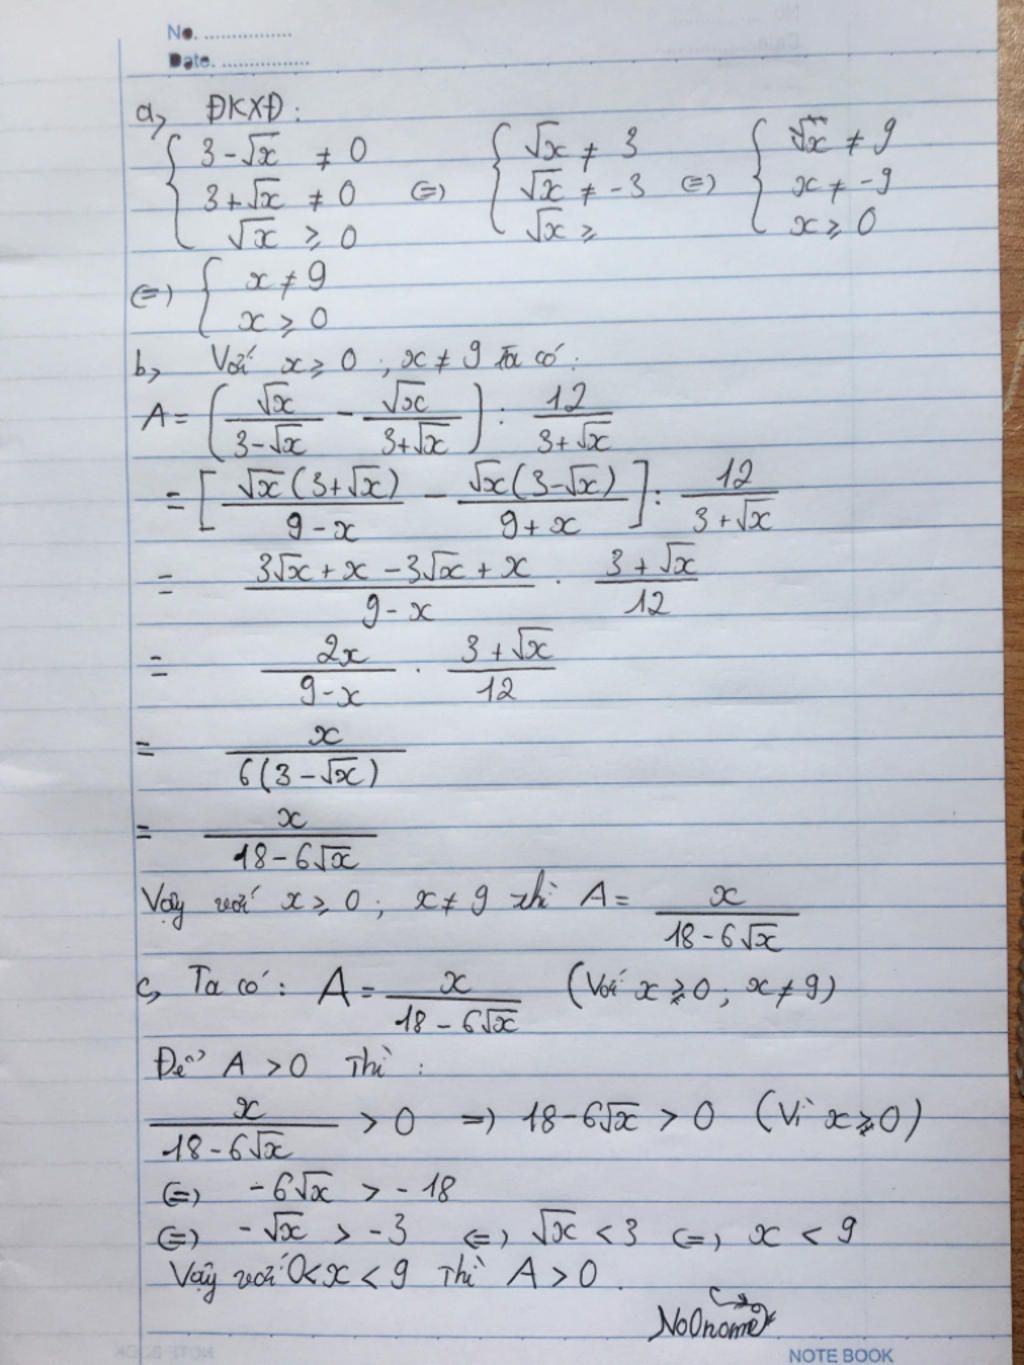 No. ................
Date. ................
a, ĐKXĐ:
{ 3 - √x ≠ 0
3 + √x ≠ 0
√x ≥ 0 (=) { √x ≠ 3
√x ≠ -3
√x ≥ (=) { √x ≠ 9
x ≠ -9
x ≥ 0
(=) { x ≠ 9
x ≥ 0
b, Với x ≥ 0 ; x ≠ 9 Ta có :
A = ( √x / (3 - √x) - √x / (3 + √x) ) : 12 / (3 + √x)
= [ √x (3 + √x) / (9 - x) - √x (3 - √x) / (9 + x) ] : 12 / (3 + √x)
= (3√x + x - 3√x + x) / (9 - x) . (3 + √x) / 12
= 2x / (9 - x) . (3 + √x) / 12
= x / 6(3 - √x)
= x / (18 - 6√x)
Vậy với x ≥ 0 ; x ≠ 9 thì A = x / (18 - 6√x)
c, Ta có : A = x / (18 - 6√x) (Với x ≥ 0 ; x ≠ 9)
Để A > 0 Thì :
x / (18 - 6√x) > 0 =) 18 - 6√x > 0 (Vì x ≥ 0)
(=) -6√x > -18
(=) -√x > -3 (=) √x < 3 (=) x < 9
Vậy với 0 < x < 9 Thì A > 0 .
NoOnome
NOTE BOOK